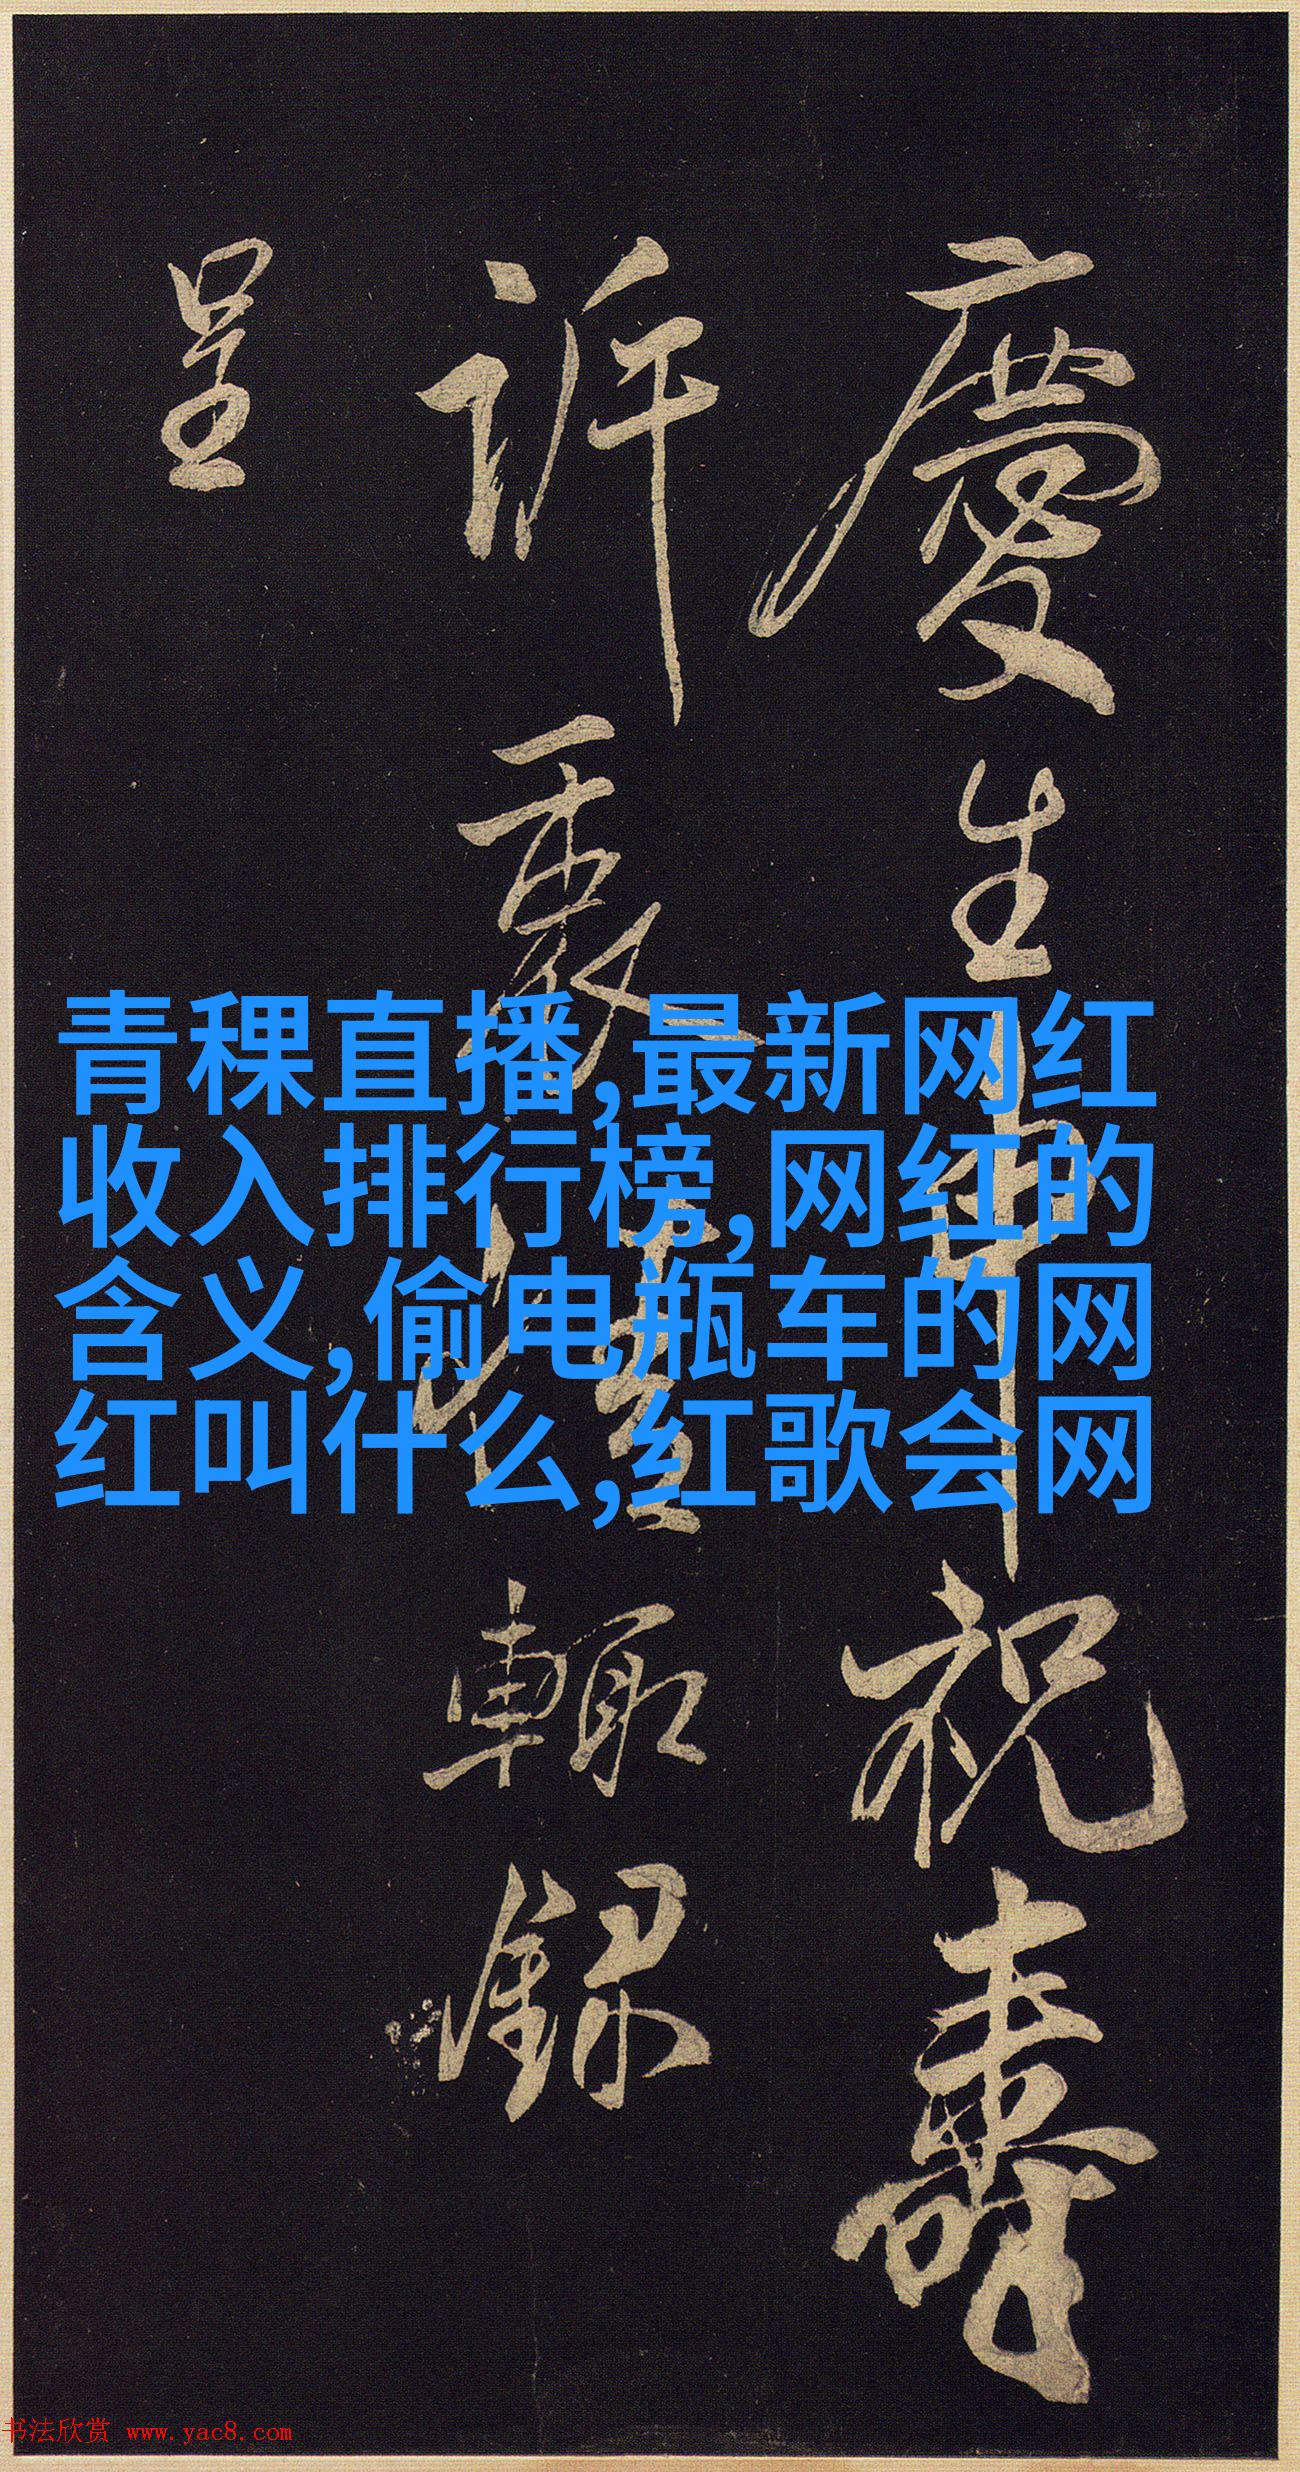 慶生申祝壽
訢褱懽輙録
呈
青稞直播,最新网红
收入排行榜,网红的
含义,偷电瓶车的网
红叫什么,红歌会网
书法欣赏 www.yac8.com